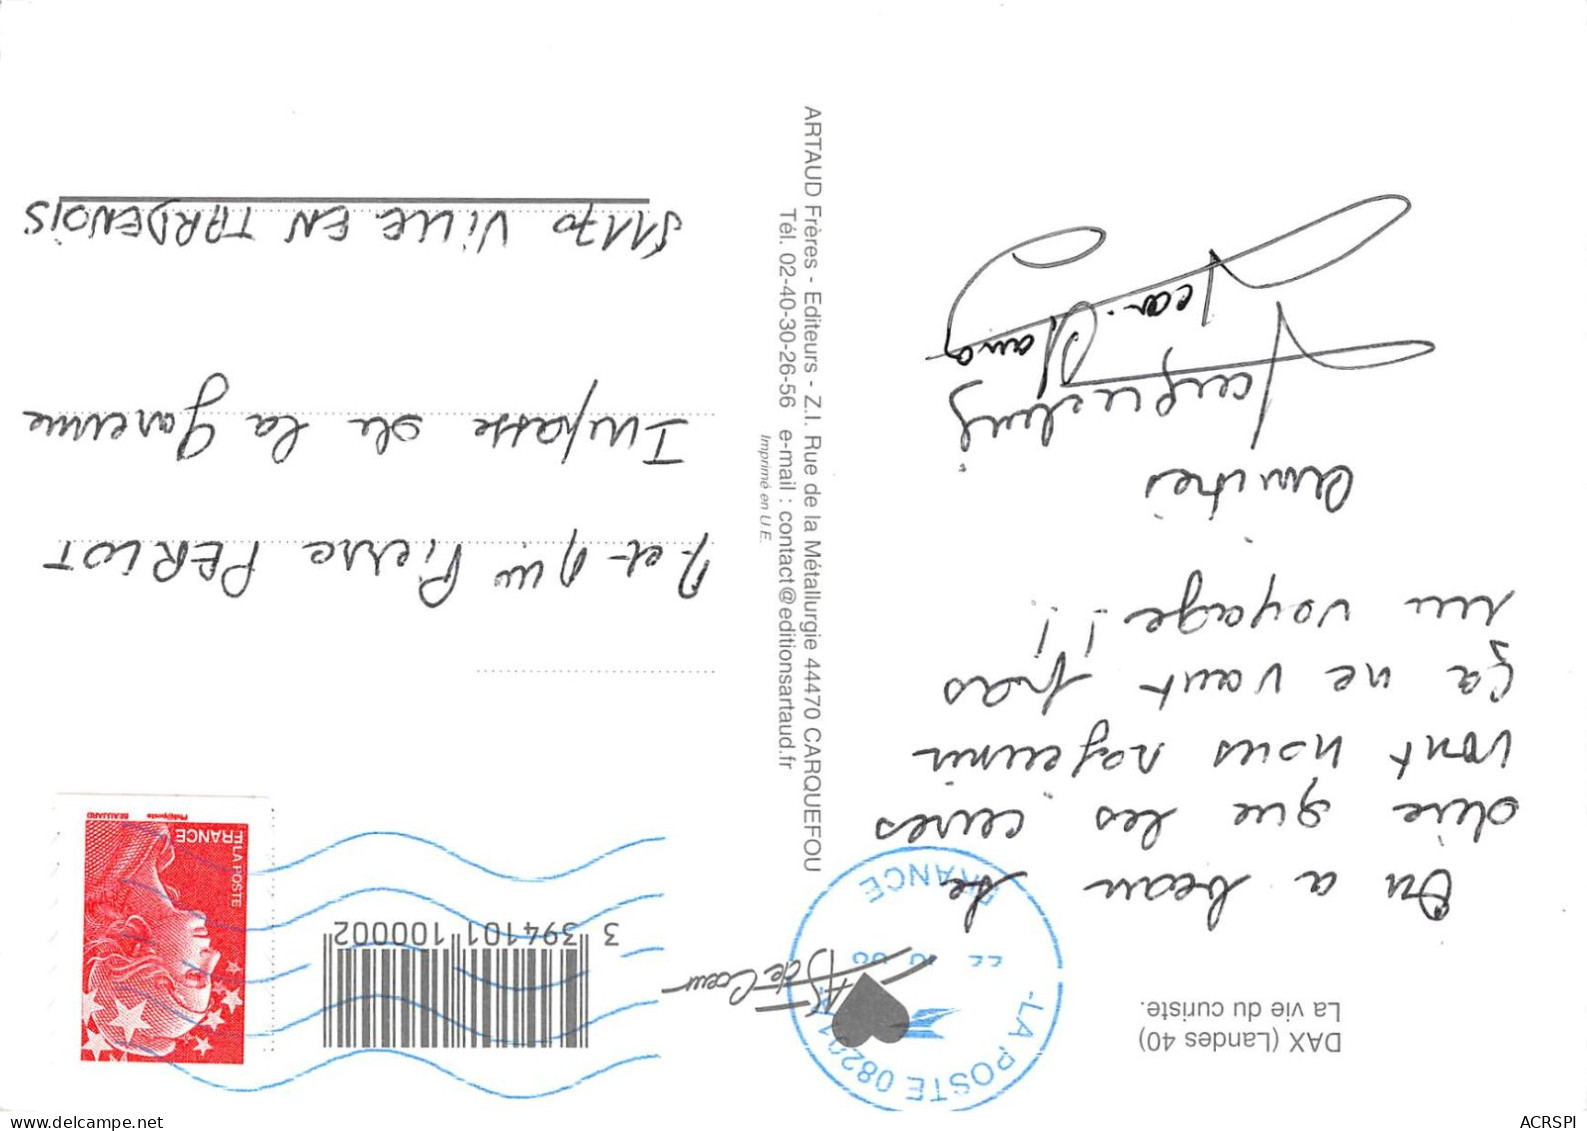 DAX (Landes 40)
La vie du curiste.
On a beau se
dire que les cures
vont nous rajeunir
ça ne vaut pas
un voyage !!
amitiés
Jacqueline
Jean
ARTAUD Frères - Editeurs - Z.I. Rue de la Métallurgie 44470 CARQUEFOU
Tél. 02-40-30-26-56 e-mail : contact@editionsartaud.fr
Imprimé en U.E.
AS de Cœur
LA POSTE
FRANCE
3 394101 100002
LA POSTE
FRANCE
Phil@poste
BEAUJARD
Pierre PERLOT
Impasse de la garenne
51170 VILLE EN TARDENOIS
ACRSPI